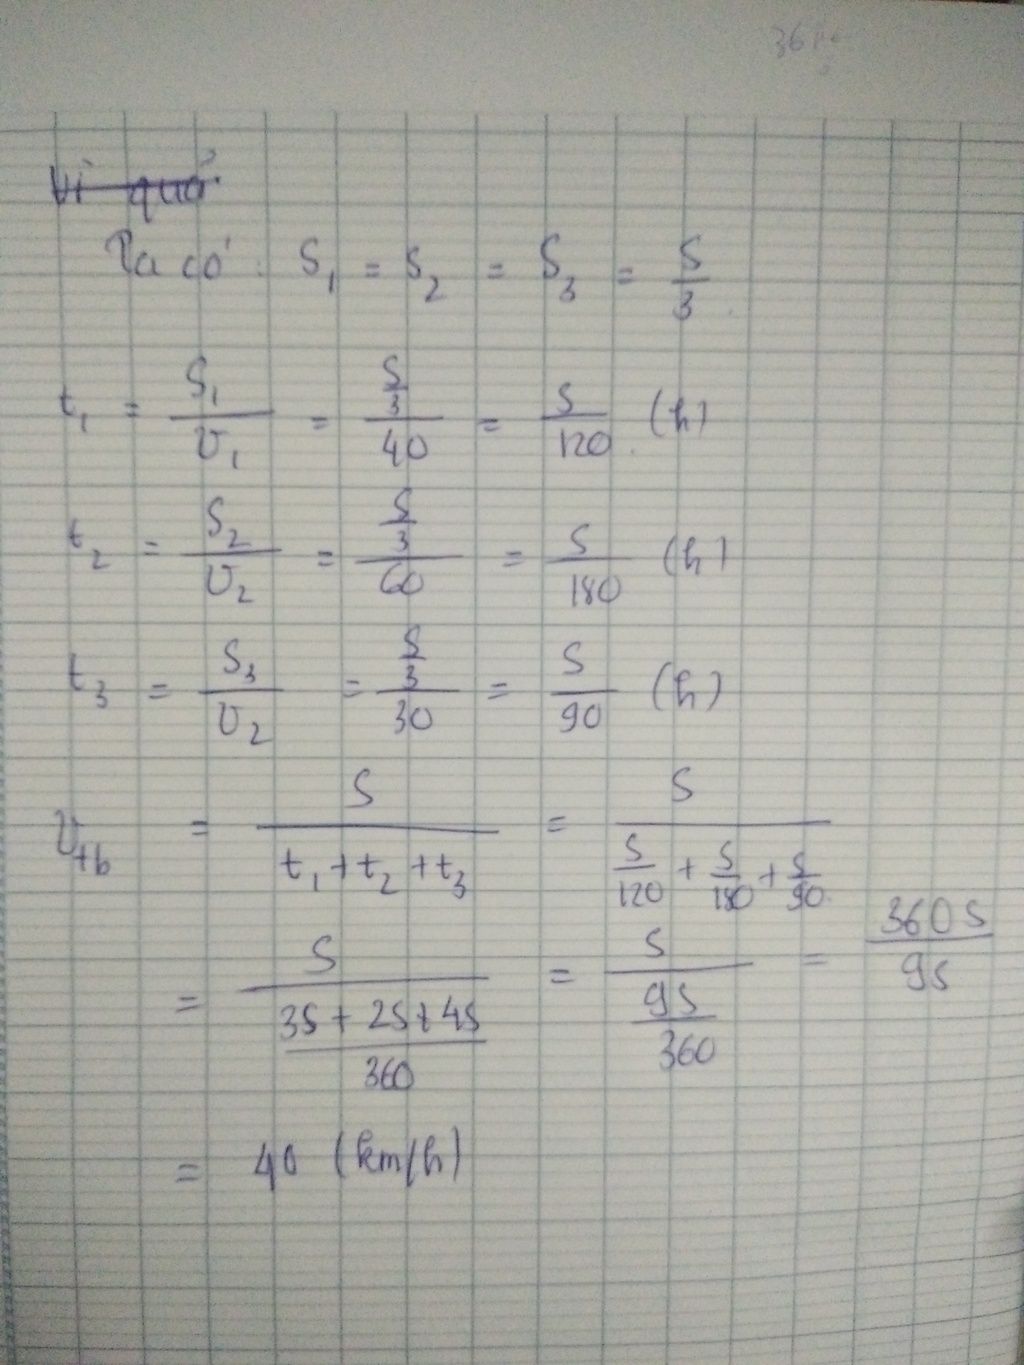 Vì quá
Ta có : S₁ = S₂ = S₃ = S/3
t₁ = S₁/v₁ = (S/3)/40 = S/120 (h)
t₂ = S₂/v₂ = (S/3)/60 = S/180 (h)
t₃ = S₃/v₂ = (S/3)/30 = S/90 (h)
v_tb = S/(t₁ + t₂ + t₃) = S/(S/120 + S/180 + S/90)
= S/((3S + 2S + 4S)/360) = S/(9S/360) = 360S/9S
= 40 (km/h)